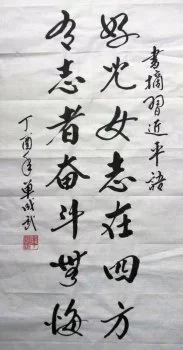 书摘習近平語
好儿女志在四方
有志者奋斗無悔
丁酉年單成武